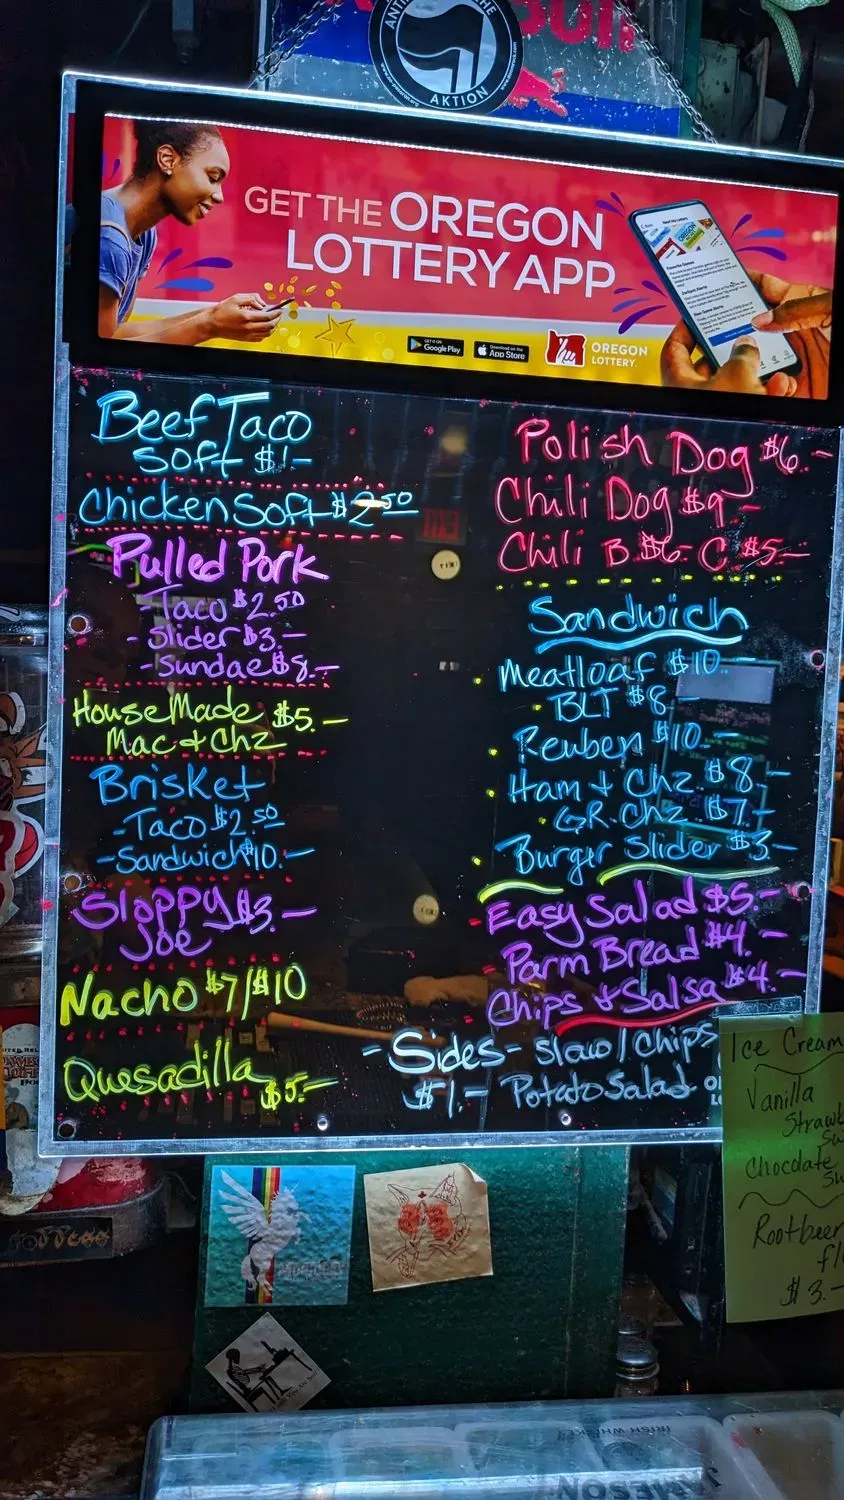 AKTION
GET THE OREGON
LOTTERY APP
GET IT ON
Google Play
Download on the
App Store
OREGON
LOTTERY.
Beef Taco
Soft $1-
Chicken Soft $2.50
Pulled Pork
-Taco $2.50
-Slider $3.-
-Sundae $8.-
House Made $5.-
Mac + Chz
Brisket
-Taco $2.50
-Sandwich $10.-
Sloppy $3.-
Joe
Nacho $7/$10
Quesadilla $5.-
Polish Dog $6.-
Chili Dog $9.-
Chili B. $6.- C. $5.-
Sandwich
Meatloaf $10.-
BLT $8.-
Reuben $10.-
Ham + Chz $8.-
GR. Chz $7.-
Burger Slider $3.-
Easy Salad $5.-
Parm Bread $4.-
Chips & Salsa $4.-
-Sides- Slaw/Chips
$1.- Potato Salad
Ice Cream
Vanilla
Chocdate
Rootbeer
$3.-
IRISH WHISKEY
JAMESON